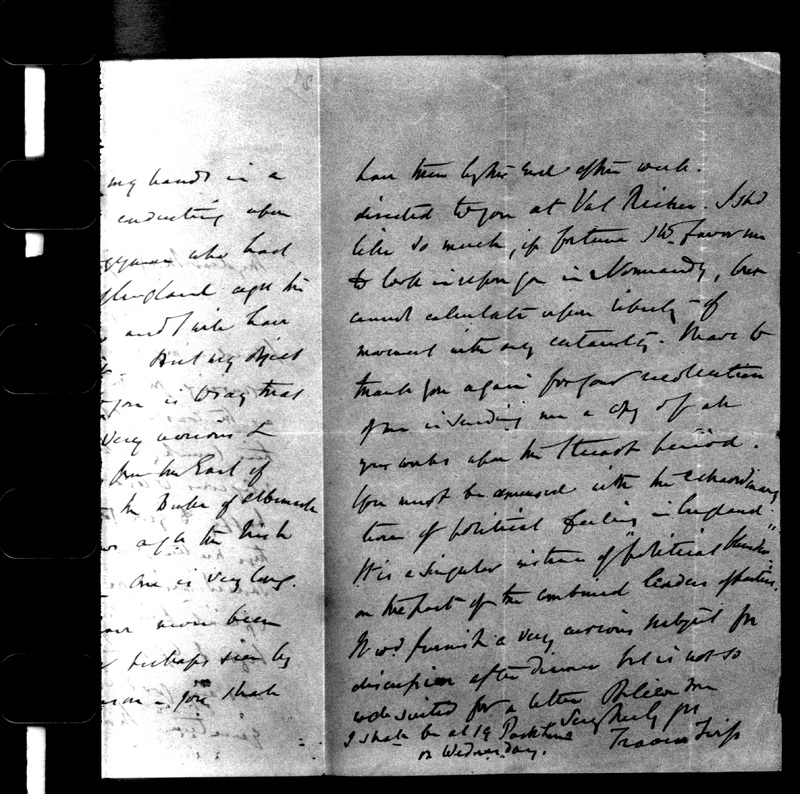 my hands in a
conducting upon
who had
England agst his
and I will have
But my object
you is to say that
very curious &
from the Earl of
the Duke of Albemarle
agst the Irish
One is very long.
have never been
perhaps seen by
you shall
have them by the end of the week.
directed to you at Val Richer. I shd
like so much, if fortune shd. favor me
to look in upon you in Normandy, but
cannot calculate upon liberty of
movement with any certainty. I have to
thank you again for your recollection
of me in sending me a copy of all
your works upon the Stuart period.
You must be amused with the extraordinary
turn of political feeling in England.
It is a singular instance of "political blunder"
on the part of the combined leaders of parties.
It wd. furnish a very curious subject for
discussion after dinner but is not so
well suited for a letter. Believe me
Very truly yrs
Travers Twiss
I shall be at 19 Park Lane
on Wednesday.